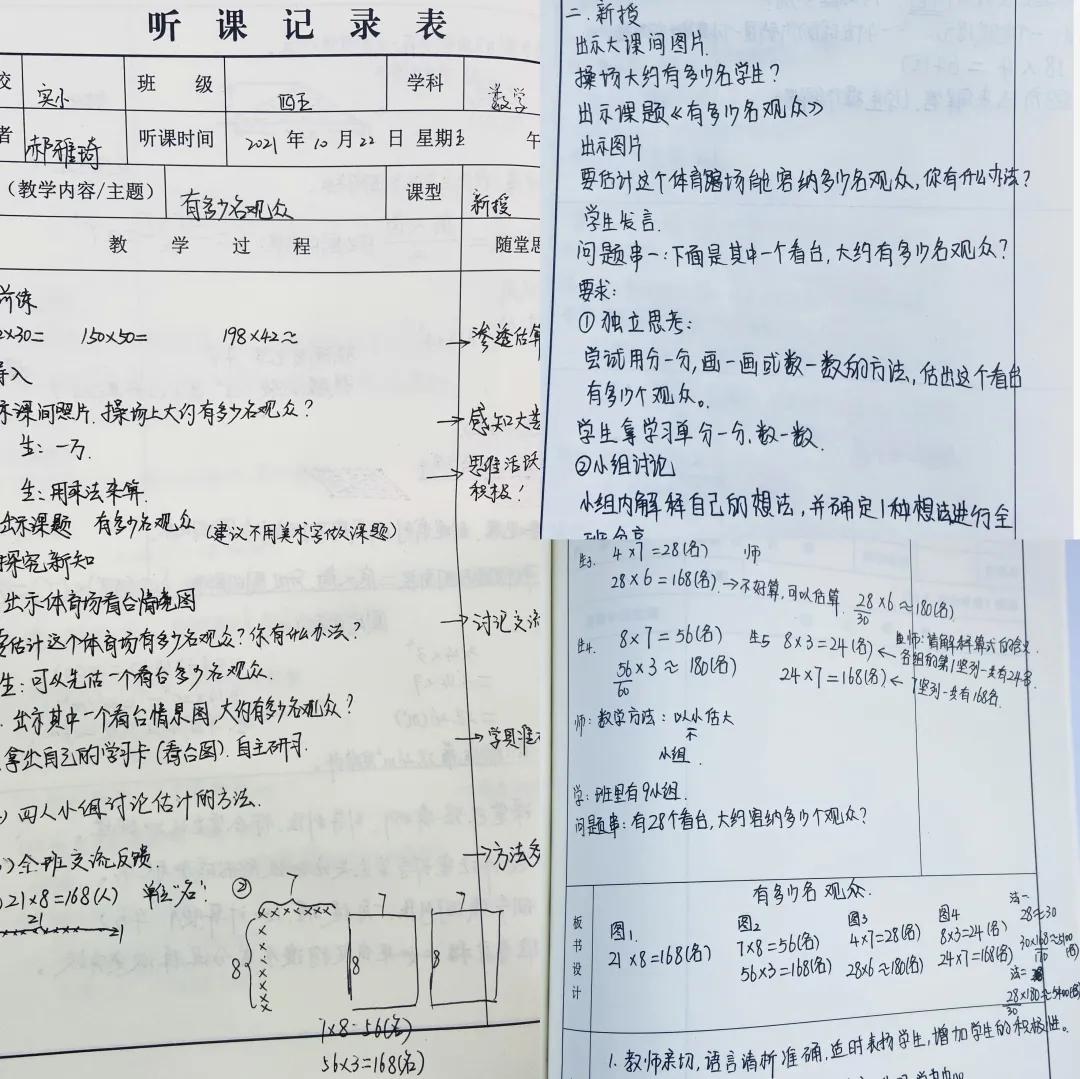 听课记录表
校 实小 班 级 四五 学科 数学
者 郝雅琦 听课时间 2021年10月22日 星期五 午
(教学内容/主题) 有多少名观众 课型 新授
教 学 过 程 随堂思
前练
2×30= 150×50= 198×42≈ →渗透估算
导入
示课间照片.操场上大约有多少名观众? →感知大
生:一万. →思维活跃
积极!
生:用乘法来算.
出示课题 有多少名观众 (建议不用美术字做课题)
探究新知
出示体育场看台情境图
要估计这个体育场有多少名观众?你有什么办法? →讨论交流
生:可以先估一个看台多少名观众.
.出示其中一个看台情景图,大约有多少名观众?
拿出自己的学习卡(看台图).自主研习. →学具准
) 四人小组讨论估计的方法.
) 全班交流反馈. →方法多
)21×8=168(人) 单位"名"!
21
21
② 7 7 7
8 8 8
7×8=56(名)
56×3=168(名)
二.新授
出示大课间图片.
操场大约有多少名学生?
出示课题《有多少名观众》
出示图片
要估计这个体育场能容纳多少名观众,你有什么办法?
学生发言.
问题串一:下面是其中一个看台,大约有多少名观众?
要求:
①独立思考:
尝试用分一分,画一画或数一数的方法,估出这个看台
有多少个观众。
学生拿学习单分一分,数一数.
②小组讨论
小组内解释自己的想法,并确定1种想法进行全
班分享
生3. 4×7=28(名) 师
28×6=168(名).→不好算,可以估算. 28×6≈180(名)
30
生4. 8×7=56(名) 生5 8×3=24(名)← 师:请解释算式的含义.
各组的第1竖列一共有24名.
56×3≈180(名) 24×7=168(名)← 7竖列一共有168名.
60
师:数学方法:以小估大
不
小组.
学:班里有9小组.
问题串:有28个看台,大约容纳多少个观众?
板书设计
有多少名观众.
图1. 图2 图3 图4 法一
21×8=168(名) 7×8=56(名) 4×7=28(名) 8×3=24(名) 28≈30
56×3=168(名) 28×6≈180(名) 24×7=168(名) 30×168≈5100(名)
170
法二
28×180≈5400(名)
30
1.教师亲切,语言清晰准确,适时表扬学生,增加学生的积极性。